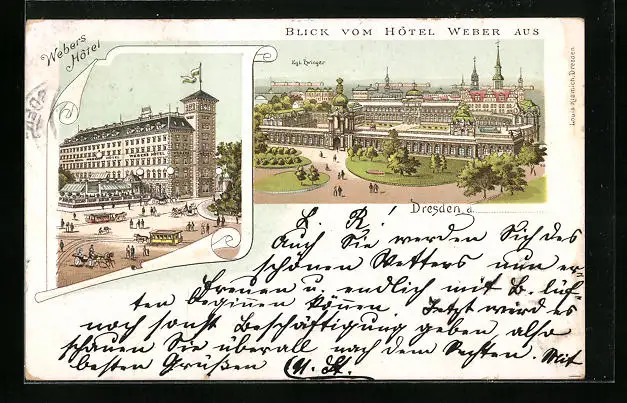 BLICK VOM HÔTEL WEBER AUS
Webers
Hôtel
Kgl. Zwinger
Louis Glaser
Dresden, d.
L. R!
Auch Sie werden Sich des
schönen Wetters nun er-
freuen u. endlich mit B. lüf-
ten beginnen können. Jetzt wird es
noch sonst Beschäftigung geben, also
schauen Sie überall nach dem Rechten. Mit
besten Grüßen